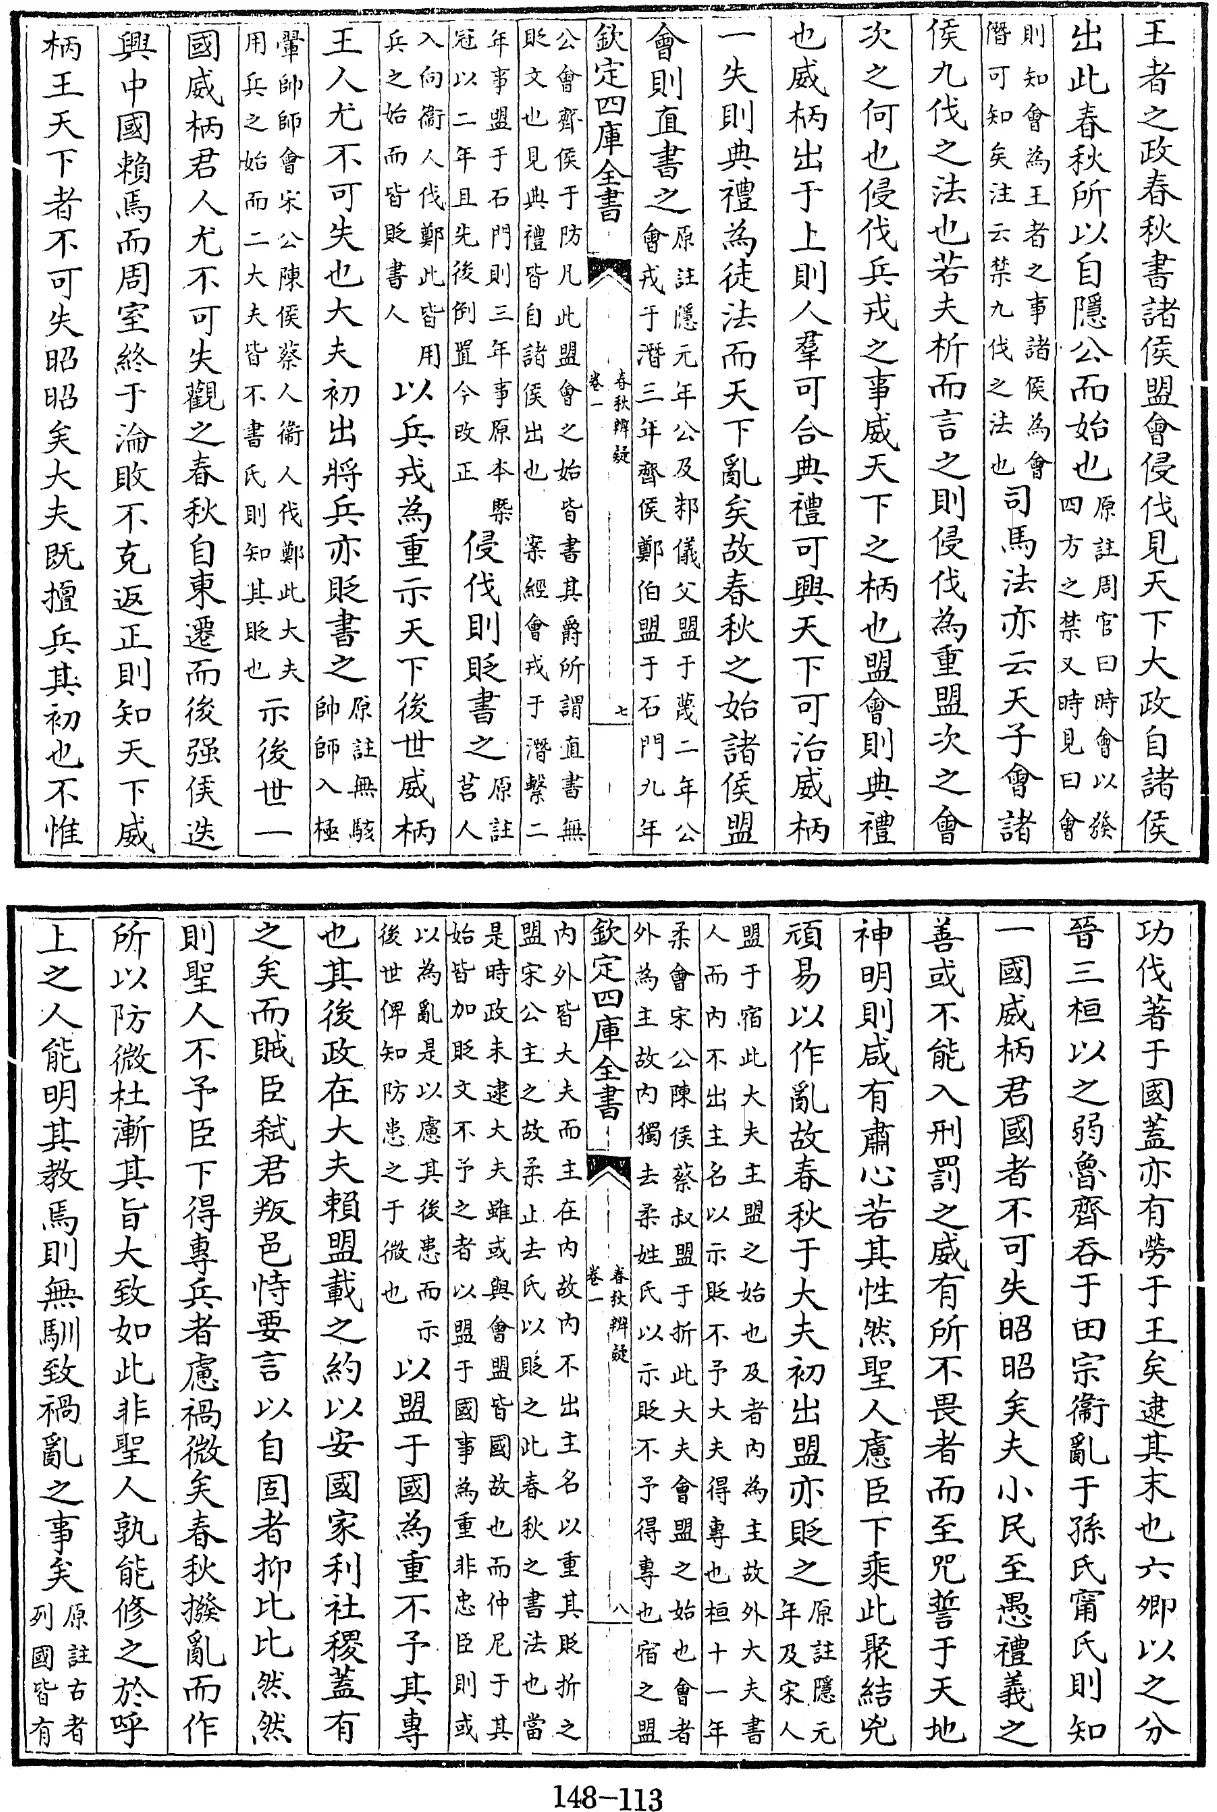 王者之政春秋書諸侯盟會侵伐見天下大政自諸侯
出此春秋所以自隱公而始也原註周官曰時會以發四方之禁又時見曰會
則知會為王者之事諸侯為會僭可知矣注云禁九伐之法也司馬法亦云天子會諸
侯九伐之法也若夫析而言之則侵伐為重盟次之會
次之何也侵伐兵戎之事威天下之柄也盟會則典禮
也威柄出于上則人羣可合典禮可興天下可治威柄
一失則典禮為徒法而天下亂矣故春秋之始諸侯盟
會則直書之原註隱元年公及邾儀父盟于蔑二年公會戎于潛三年齊侯鄭伯盟于石門九年
欽定四庫全書 春秋辨疑 卷一 七
公會齊侯于防凡此盟會之始皆書其爵所謂直書無貶文也見典禮皆自諸侯出也 案經會戎于潛繫二
年事盟于石門則三年事原本槩冠以二年且先後倒置今改正侵伐則貶書之原註莒人
入向衞人伐鄭此皆用兵之始而皆貶書人以兵戎為重示天下後世威柄
王人尤不可失也大夫初出將兵亦貶書之原註無駭帥師入極
翬帥師會宋公陳侯蔡人衞人伐鄭此大夫用兵之始而二大夫皆不書氏則知其貶也示後世一
國威柄君人尤不可失觀之春秋自東遷而後强侯迭
興中國賴焉而周室終于淪敗不克返正則知天下威
柄王天下者不可失昭昭矣大夫既擅兵其初也不惟
功伐著于國蓋亦有勞于王矣逮其末也六卿以之分
晉三桓以之弱魯齊吞于田宗衞亂于孫氏甯氏則知
一國威柄君國者不可失昭昭矣夫小民至愚禮義之
善或不能入刑罰之威有所不畏者而至咒誓于天地
神明則咸有肅心若其性然聖人慮臣下乘此聚結兇
頑易以作亂故春秋于大夫初出盟亦貶之原註隱元年及宋人
盟于宿此大夫主盟之始也及者內為主故外大夫書人而內不出主名以示貶不予大夫得專也桓十一年
柔會宋公陳侯蔡叔盟于折此大夫會盟之始也會者外為主故內獨去柔姓氏以示貶不予得專也宿之盟
欽定四庫全書 春秋辨疑 卷一 八
內外皆大夫而主在內故內不出主名以重其貶折之盟宋公主之故柔止去氏以貶之此春秋之書法也當
是時政未逮大夫雖或與會盟皆國故也而仲尼于其始皆加貶文不予之者以盟于國事為重非忠臣則或
以為亂是以慮其後患而示後世俾知防患之于微也以盟于國為重不予其專
也其後政在大夫賴盟載之約以安國家利社稷蓋有
之矣而賊臣弒君叛邑恃要言以自固者抑比比然然
則聖人不予臣下得專兵者慮禍微矣春秋撥亂而作
所以防微杜漸其旨大致如此非聖人孰能修之於呼
上之人能明其教焉則無馴致禍亂之事矣原註古者列國皆有
148-113